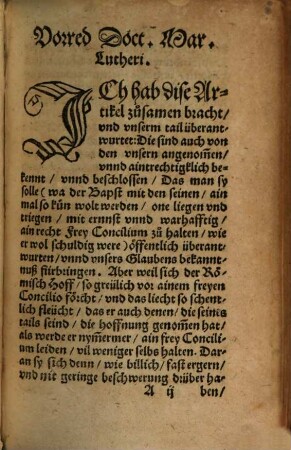 Vorred Doct. Mar.
Lutheri.
ICh hab dise Ar-
tikel zůsamen bracht/
vnd vnserm tail überant-
wurtet: Die sind auch von
den vnsern angenom̃en/
vnnd aintrechtigklich be-
kennt / vnnd beschlossen / Das man sy
solle (wa der Bapst mit den seinen / ain
mal so kůn wolt werden / one liegen vnd
triegen / mit ernnst vnnd warhafftig /
ain recht Frey Concilium zů halten / wie
er wol schuldig were) öffentlich überant-
wurten / vnnd vnsers Glaubens bekannt-
nuß fürbringen. Aber weil sich der Rö-
misch Hoff / so greülich vor ainem freyen
Concilio förcht / vnd das liecht so schent-
lich fleücht / das er auch denen / die seines
tails seind / die hoffnung genom̃en hat /
als werde er nym̃ermer / ain frey Concili-
um leiden / vil weniger selbs halten. Dar-
an sy sich denn / wie billich / fast ergern /
vnd nit geringe beschwerung drüber ha-
A ij ben/